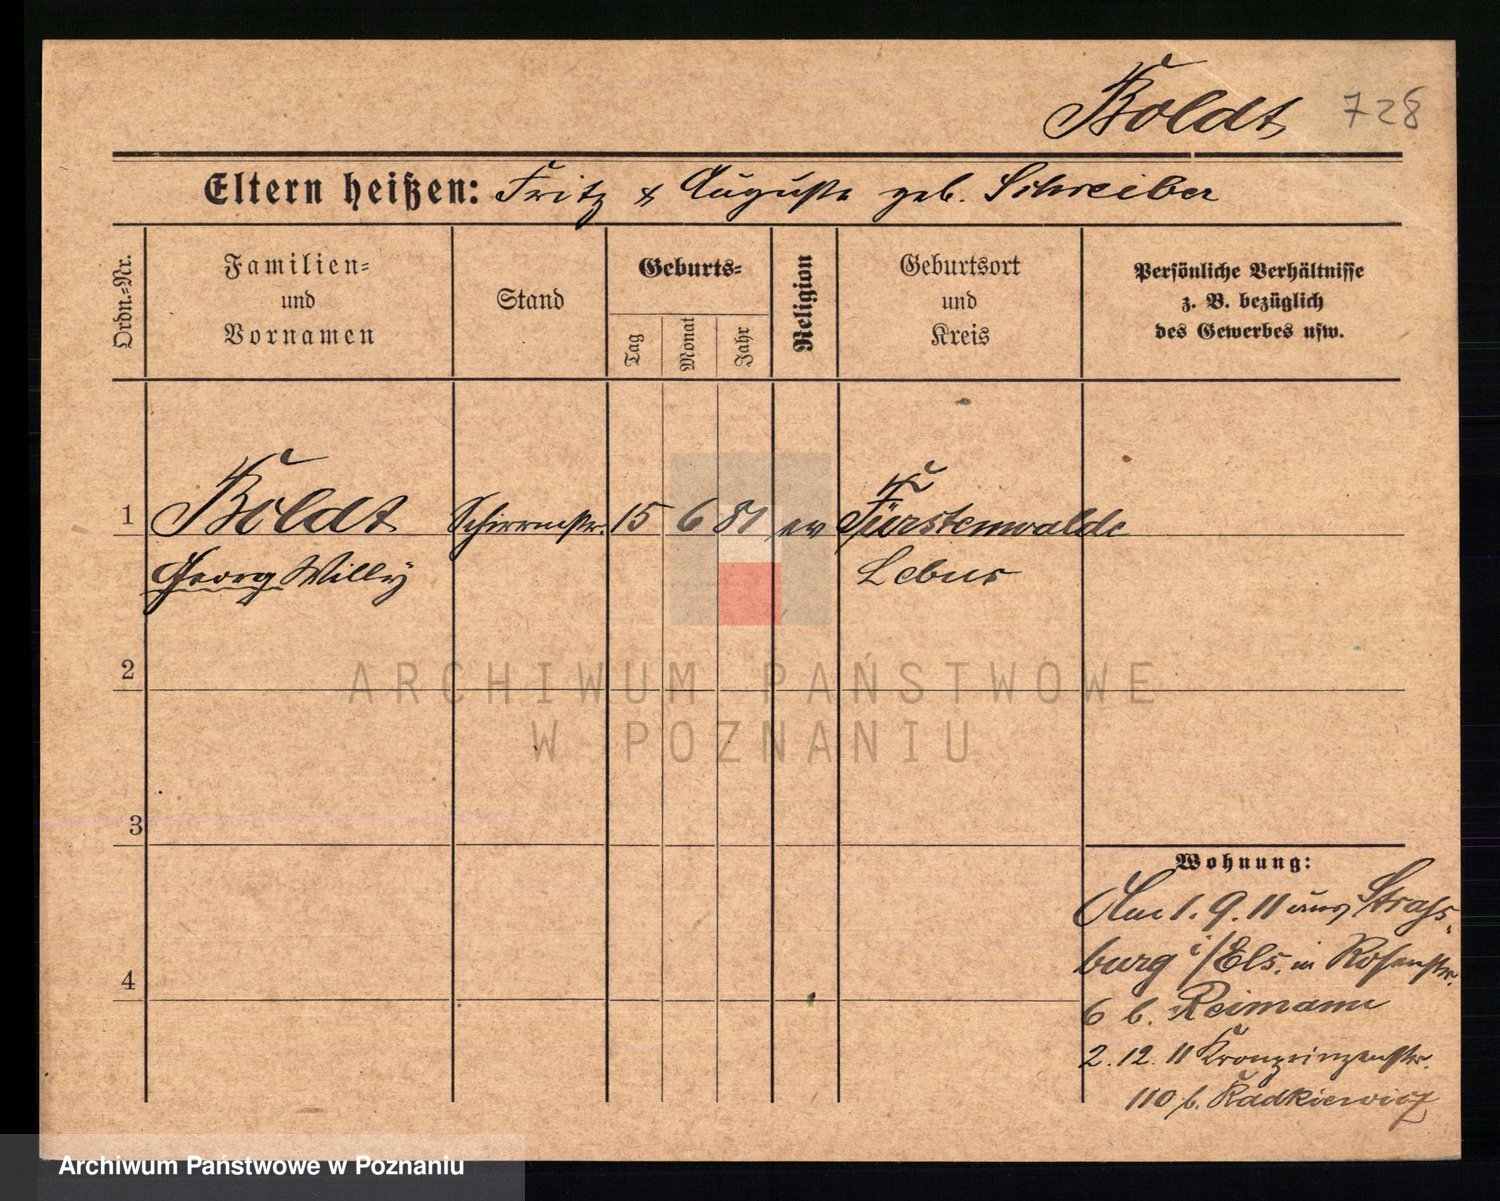 Boldt 728
Eltern heißen: Fritz & Auguste geb. Schreiber
Ordn.-Nr.
Familien-
und
Vornamen
Stand
Geburts-
Tag
Monat
Jahr
Religion
Geburtsort
und
Kreis
Persönliche Verhältnisse
z. B. bezüglich
des Gewerbes usw.
1 Boldt Schirrmstr. 15 6 81 ev Fürstenwalde
Georg Willy Lebus
2
3
4
Wohnung:
Am 1. 9. 11 aus Strass-
burg i/Els. in Rosenstr.
6 b. Reimann
2. 12. 11 Kronprinzenstr.
110 b. Radkiewicz
ARCHIWUM PAŃSTWOWE
W POZNANIU
Archiwum Państwowe w Poznaniu